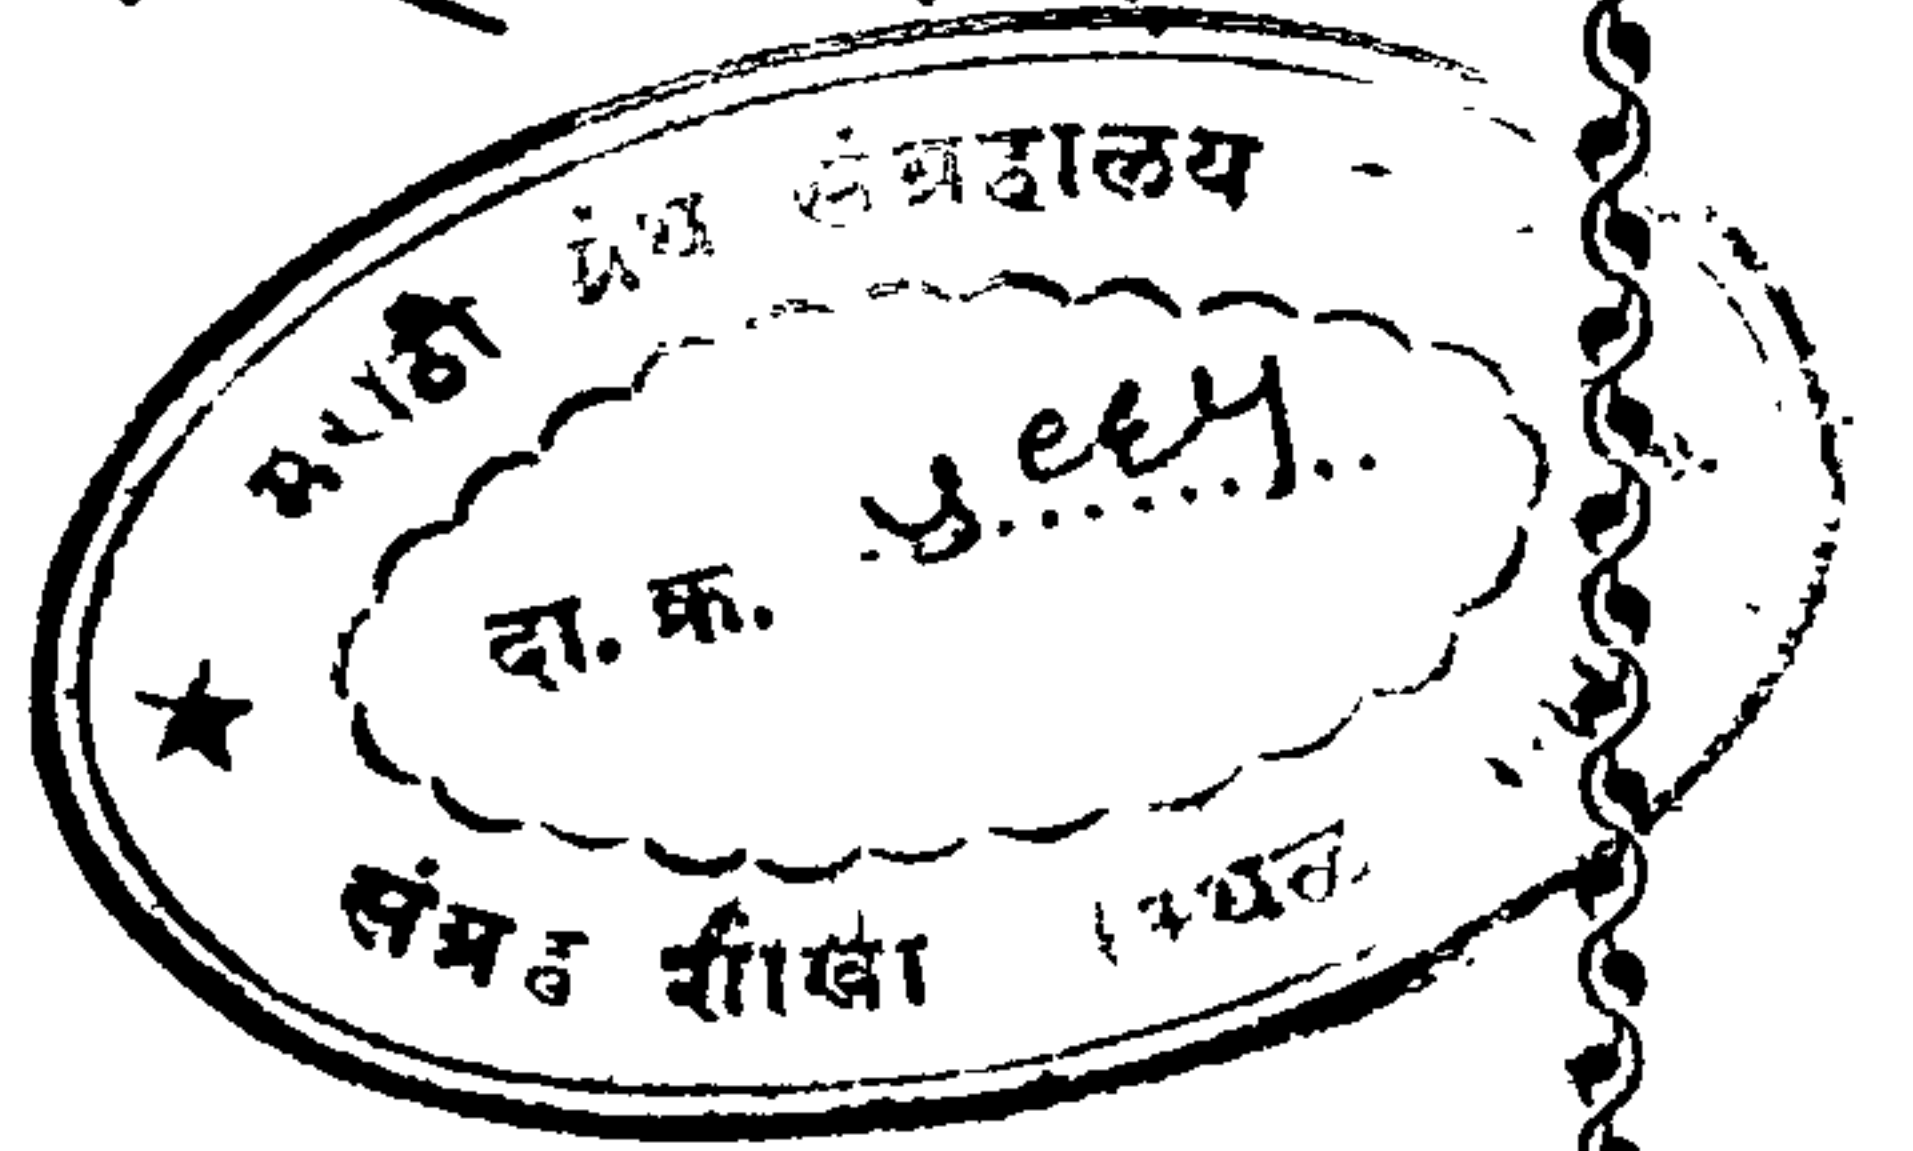 मराठी ग्रंथ संग्रहालय
दा. क्र. ५९६५
संग्रह शाखा